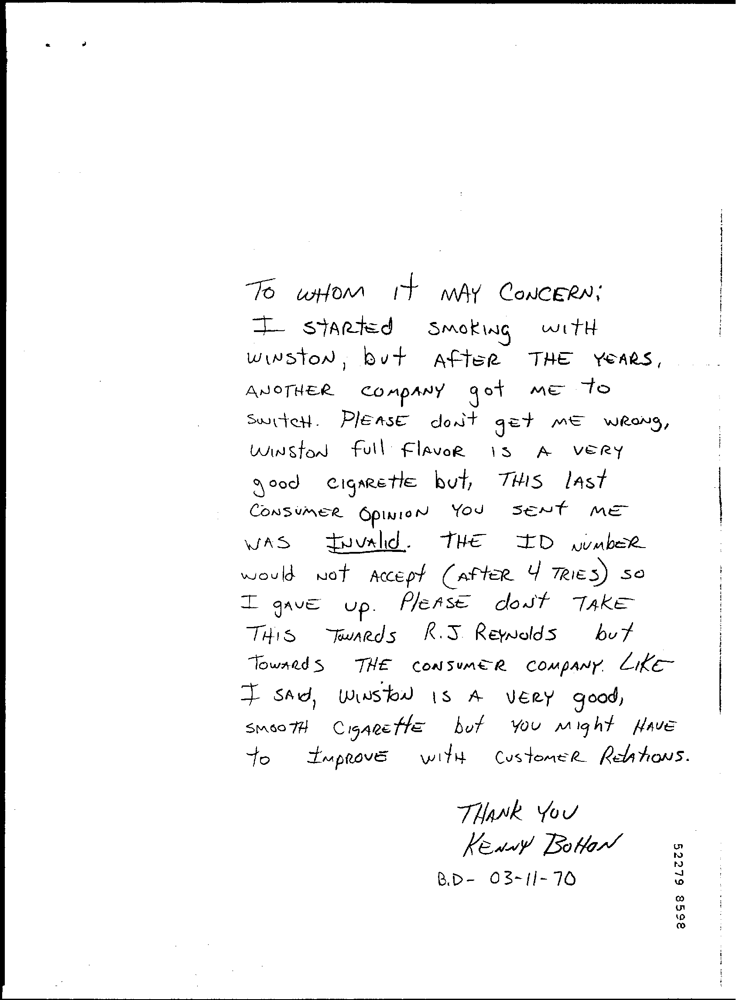 To WHOM It MAY CONCERN;
I STARTED SMOKING WITH
WINSTON, but AFTER THE YEARS,
ANOTHER COMPANY got ME to
SWITCH. PLEASE don't get ME WRONG,
WINSTON full FLAVOR IS A VERY
good CIGARETTE but, THIS LAST
CONSUMER OPINION YOU SENT ME
WAS INVALID. THE ID NUMBER
would NOT ACCEPT (AFTER 4 TRIES) SO
I GAVE UP. PLEASE don't TAKE
THIS TOWARDS R.J. REYNOLDS but
TOWARDS THE CONSUMER COMPANY. LIKE
I SAID, WINSTON IS A VERY good,
SMOOTH CIGARETTE but YOU MIGHT HAVE
to IMPROVE WITH CUSTOMER RELATIONS.
THANK YOU
KENNY BOHON
B.D- 03-11-70
52279 8598